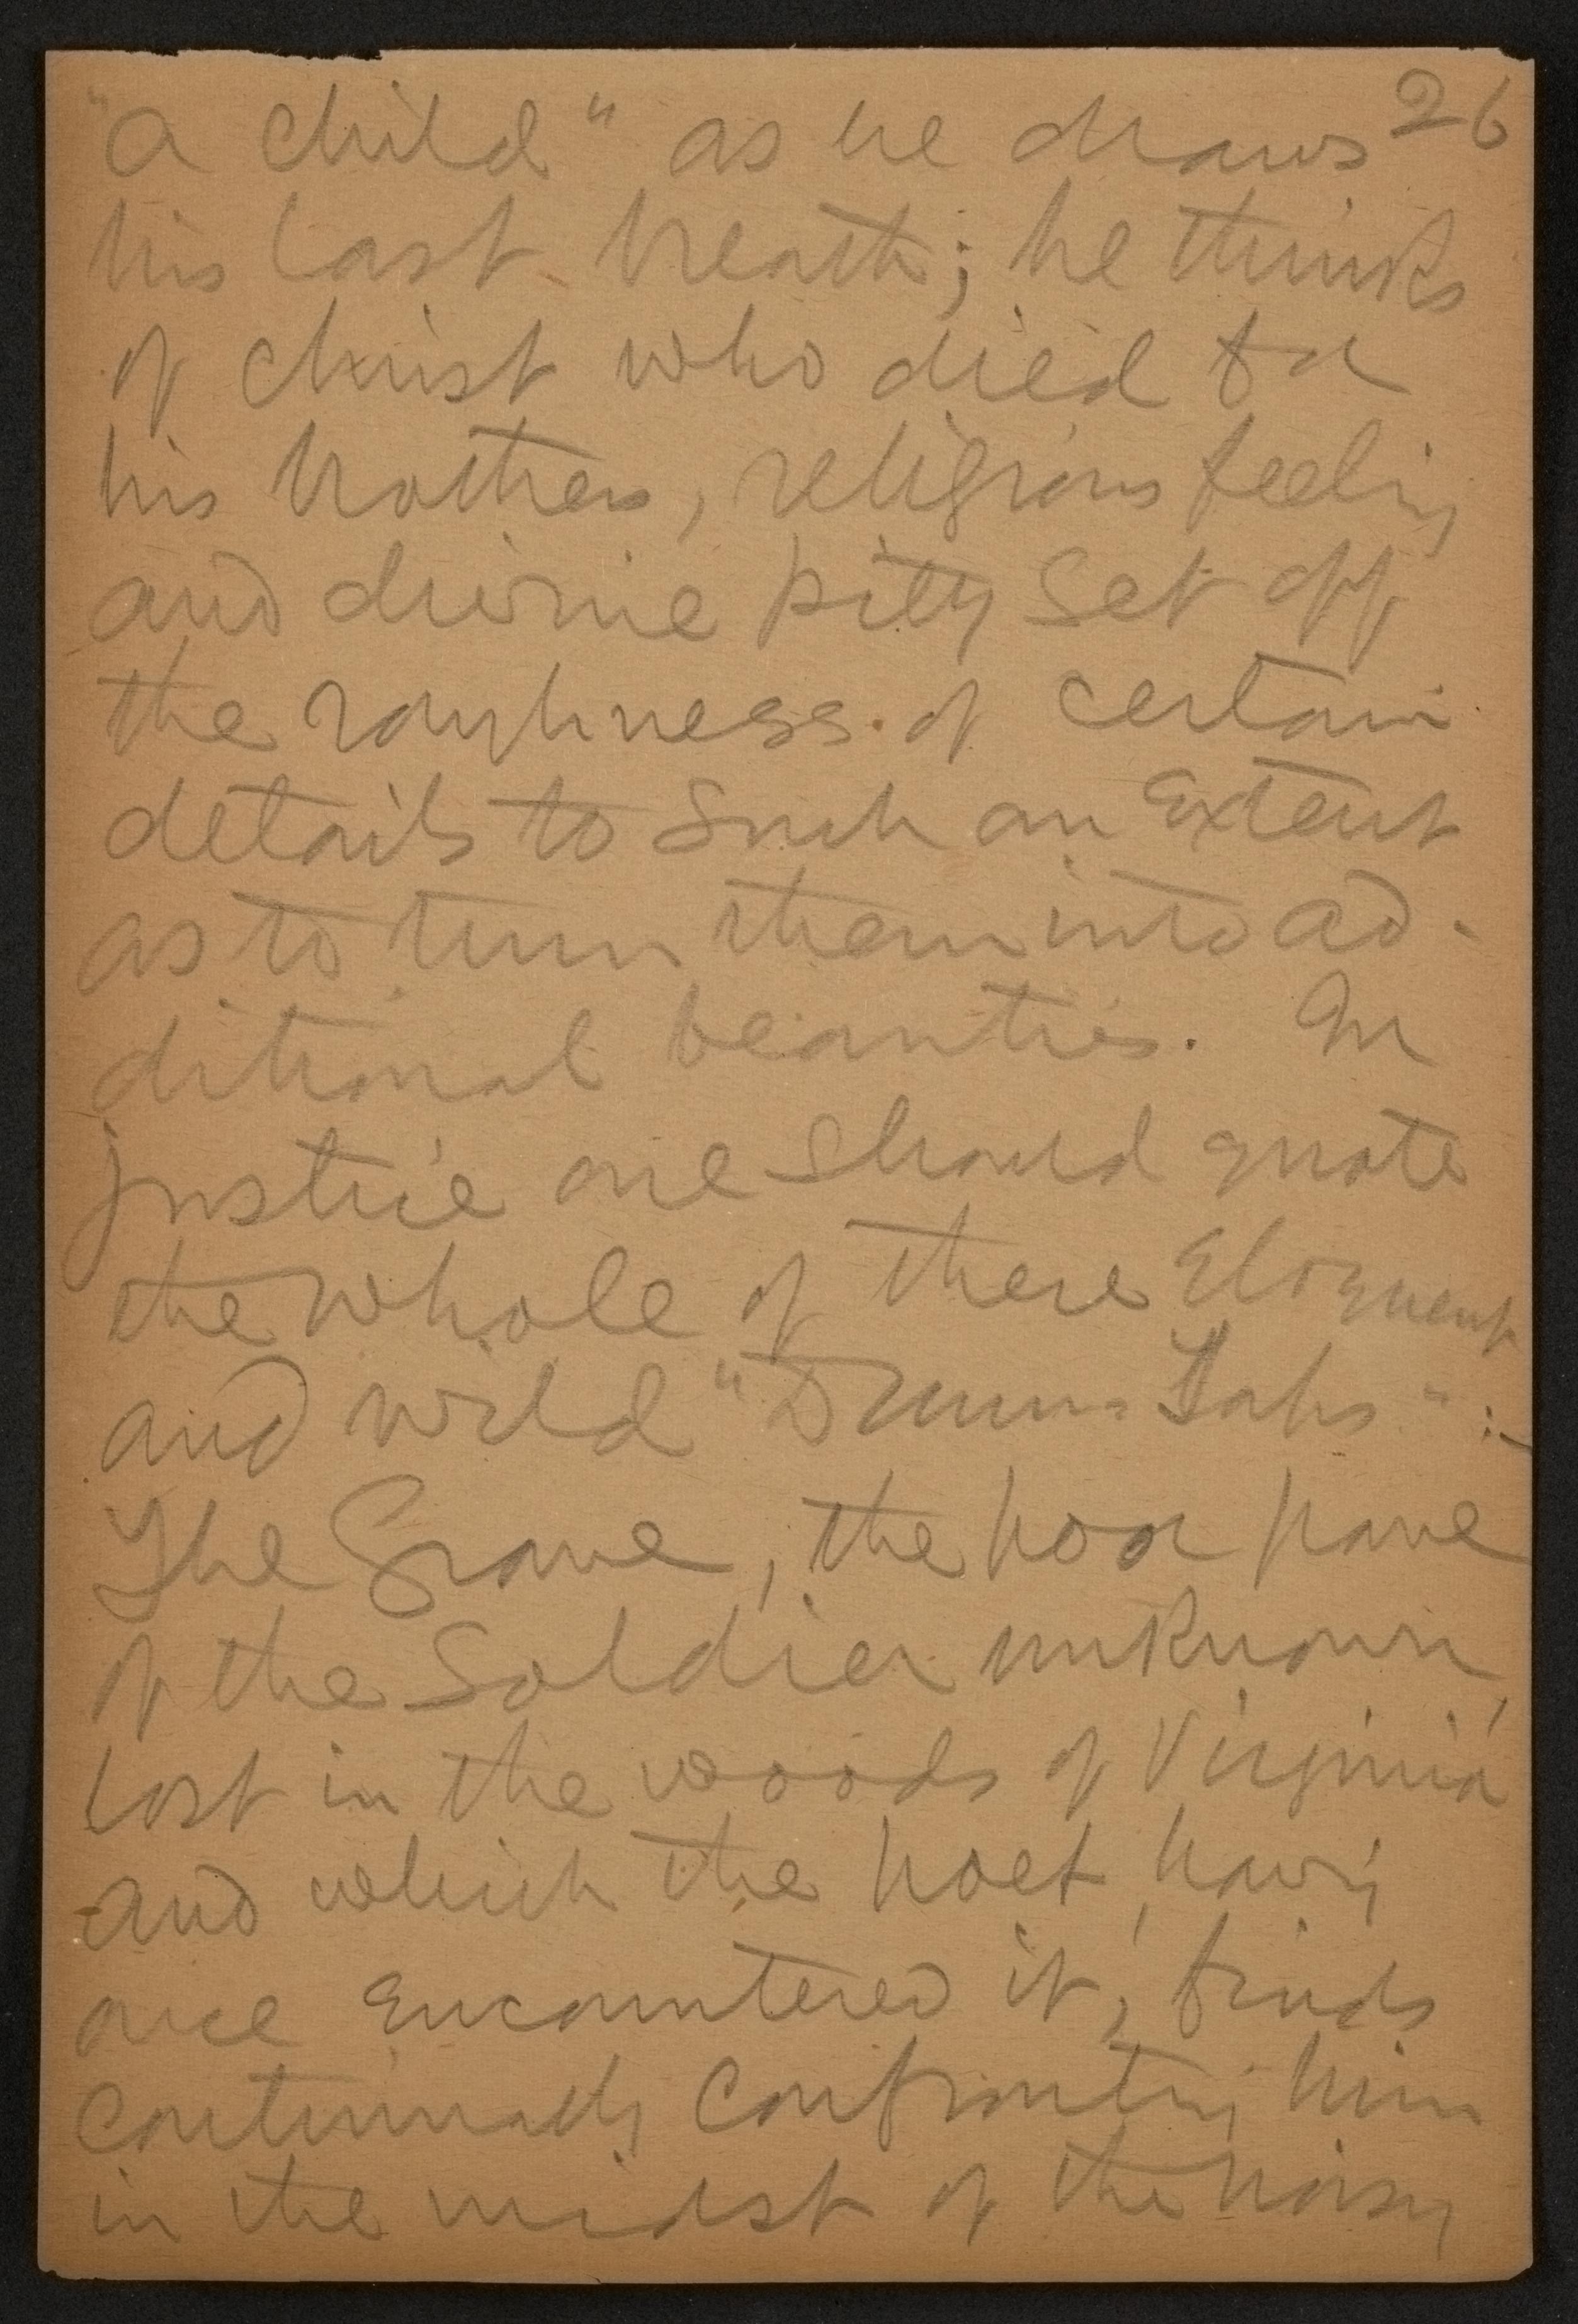 26
"a child" as he draws
his last breath; he thinks
of Christ who died for
his brothers, religious feeling
and divine pity set off
the roughness of certain
details to such an extent
as to turn them into ad-
ditional beauties. In
justice one should quote
the whole of these eloquent
and wild "Drum Taps" :-
The Grave, the poor
of the Soldier unknown,
lost in the woods of Virginia
and which the poet, having
once encountered it, finds
continually confronting him
in the midst of the noisy